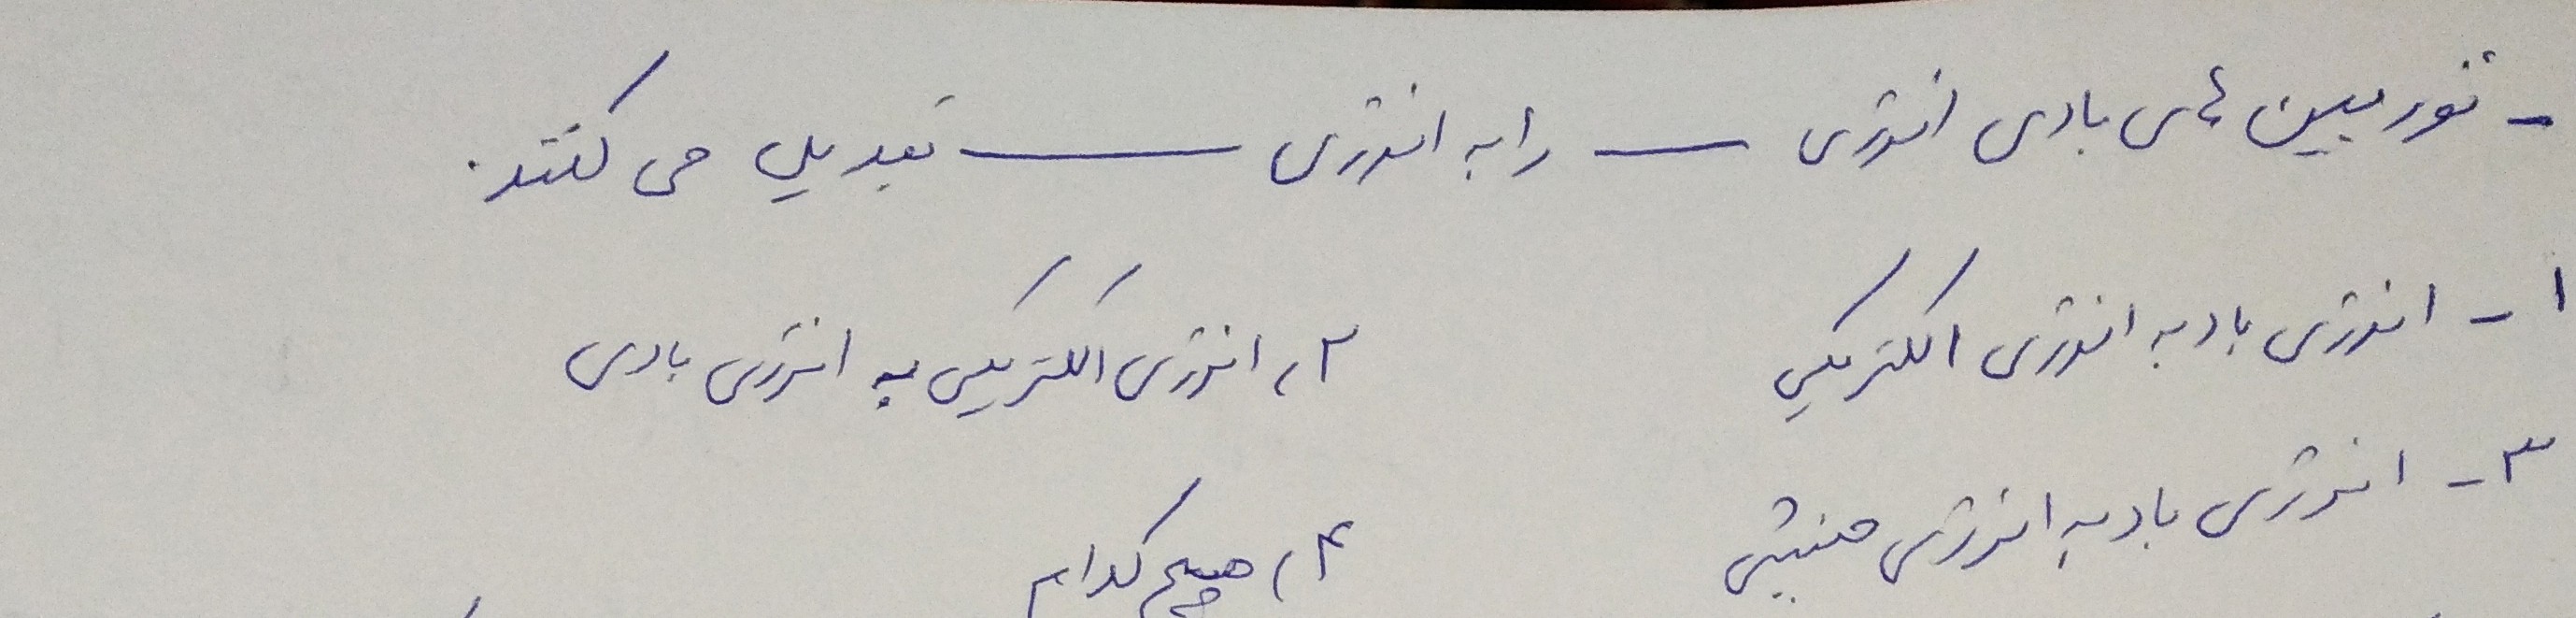 - توربین های بادی انرژی ـــــ را به انرژی ـــــــــ تبدیل می کنند.
۱ـ انرژی باد به انرژی الکتریکی ۲) انرژی الکتریکی به انرژی بادی
۳ـ انرژی باد به انرژی جنبشی ۴) هیچ کدام